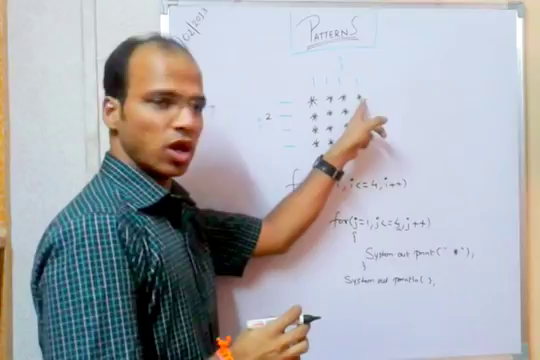 02/2013
PATTERNS
j
* * * *
2
* * *
* * *
* *
, i<=4, i++)
for(j=1, j<=4, j++)
{
System out print(" *");
}
System out println( );